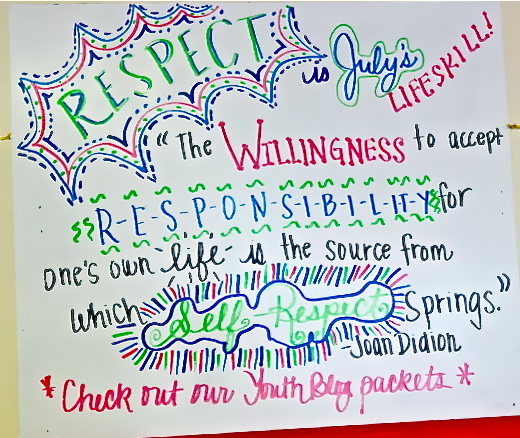 RESPECT is July's LIFESKILL!
"The WILLINGNESS to accept
R-E-S-P-O-N-S-I-B-I-L-IT-Y for
one's own life is the source from
which Self-Respect Springs."
-Joan Didion
*Check out our YouthBlog packets*